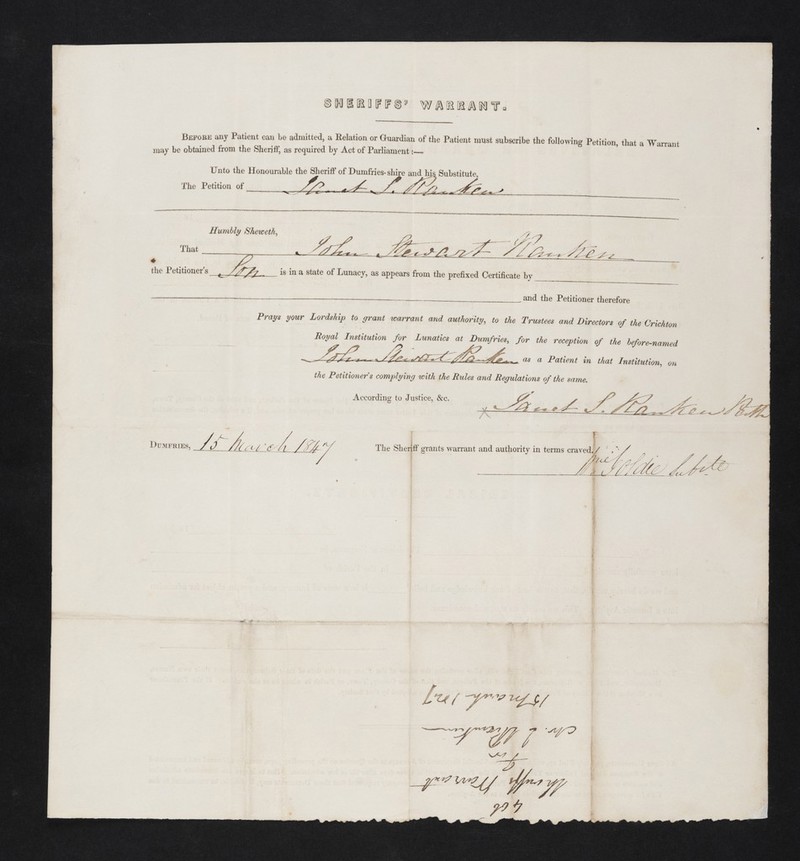 SHERIFFS' WARRANT.
BEFORE any Patient can be admitted, a Relation or Guardian of the Patient must subscribe the following Petition, that a Warrant
may be obtained from the Sheriff, as required by Act of Parliament:—
Unto the Honourable the Sheriff of Dumfries-shire and his Substitute,
The Petition of Janet S. Ranken
Humbly Sheweth,
That John Stewart Ranken
the Petitioner's Son is in a state of Lunacy, as appears from the prefixed Certificate by
and the Petitioner therefore
Prays your Lordship to grant warrant and authority, to the Trustees and Directors of the Crichton
Royal Institution for Lunatics at Dumfries, for the reception of the before-named
John Stewart Ranken as a Patient in that Institution, on
the Petitioner's complying with the Rules and Regulations of the same.
According to Justice, &c.
Janet S. Ranken
DUMFRIES, 15 March 1847 The Sheriff grants warrant and authority in terms craved.
Sheriffs Warrant
for
15 March 1847